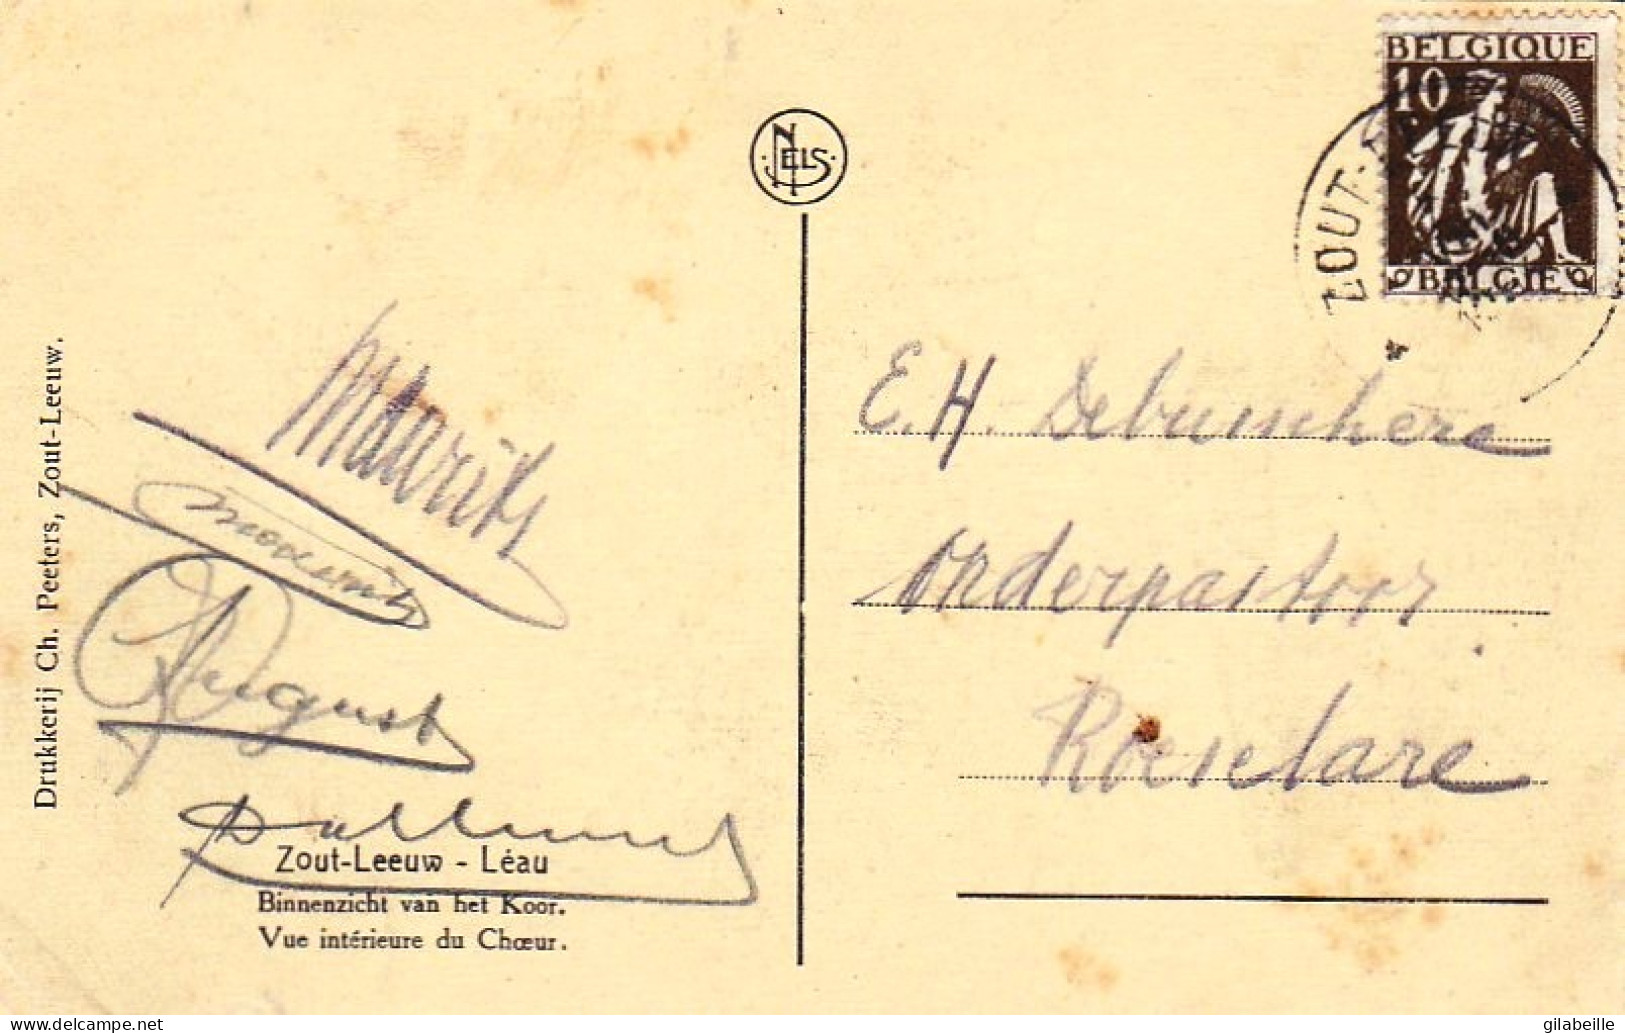 BELGIQUE
10
BELGIE
ZOUT
NELS
Drukkerij Ch. Peeters, Zout-Leeuw.
Maurits
August
E. H. Debusschere
Onderpastoor
Roeselare
Zout-Leeuw - Léau
Binnenzicht van het Koor.
Vue intérieure du Chœur.
delcampe.net
gilabeille